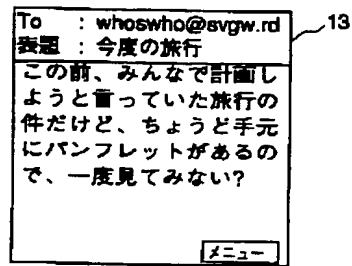 To : whoswho@svgw.rd
表題 : 今度の旅行
この前、みんなで計画し
ようと言っていた旅行の
件だけど、ちょうど手元
にパンフレットがあるの
で、一度見てみない?
メニュー
13